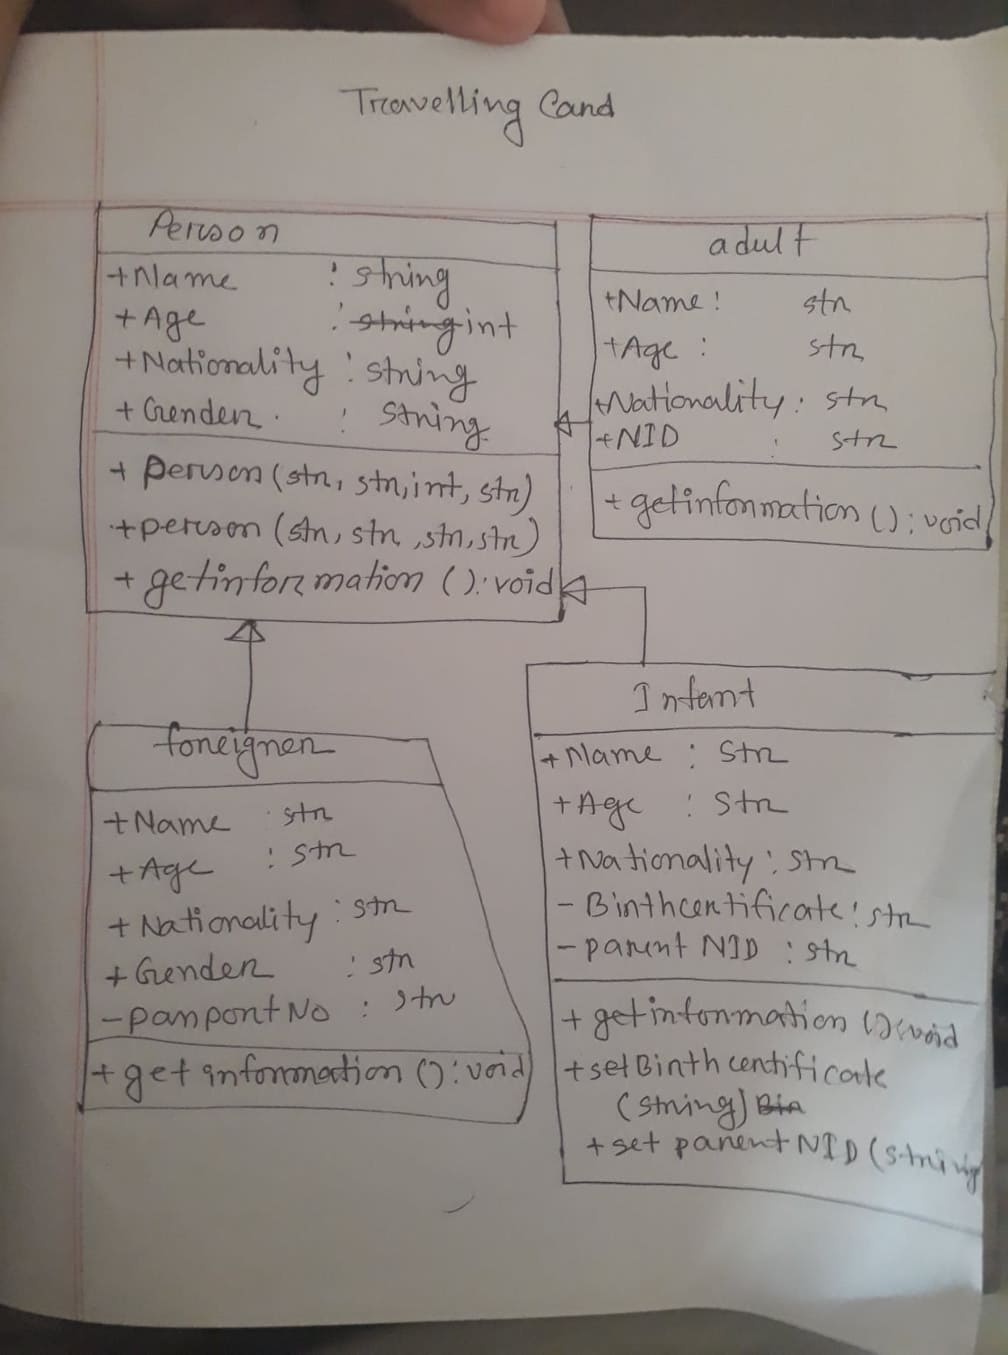 Travelling Card
Person
+Name : string
+Age : string int
+Nationality : string
+Gender : String
+ person (str, str, int, str)
+person (str, str, str, str)
+ getinformation () : void
adult
+Name : str
+Age : str
+Nationality : str
+NID : str
+ getinformation () : void
foreigner
+Name : str
+Age : str
+ Nationality : str
+Gender : str
-passportNo : str
+ get information () : void
Infant
+Name : Str
+Age : Str
+Nationality : str
- Birthcertificate : str
- parent NID : str
+ getinformation () : void
+set Birth certificate
(string)
+ set parent NID (string